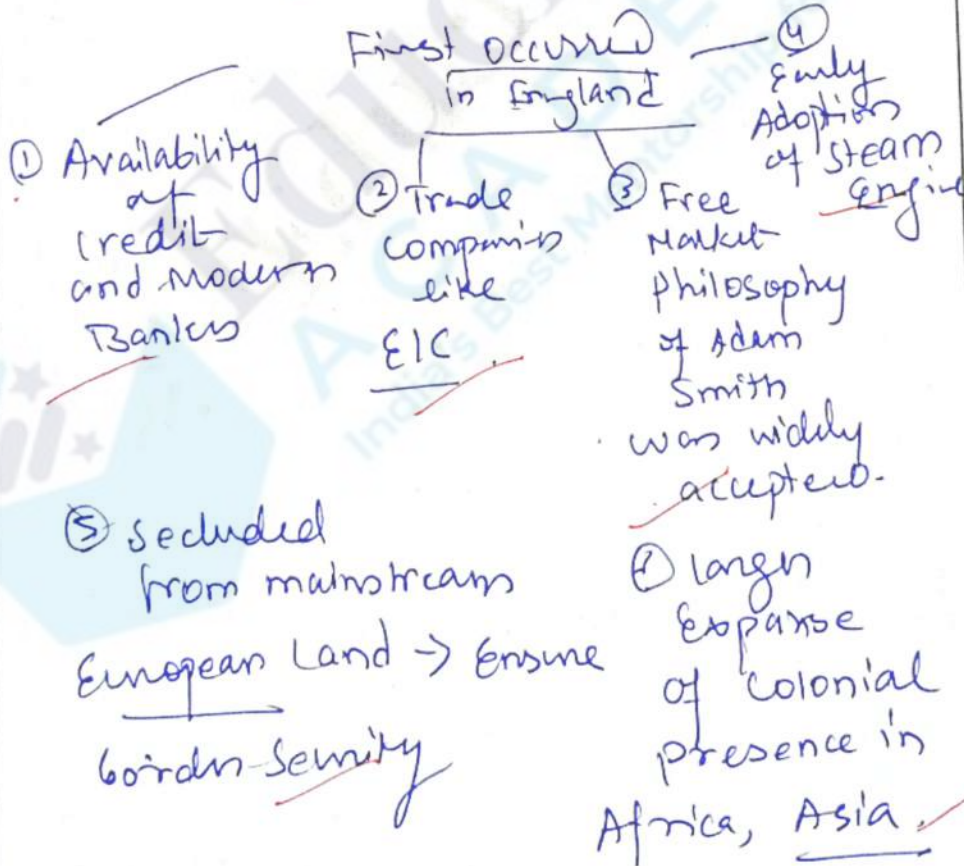 First occurred
in England
① Availability
of
credit
and Modern
Banks
② Trade
companies
like
EIC
③ Free
Market
philosophy
of Adam
Smith
was widely
accepted.
④
Early
Adoption
of Steam
Engine
⑤ Secluded
from mainstream
European Land → Ensure
border-Security
Larger
Expanse
of colonial
presence in
Africa, Asia.
Educ
ACADE
India's Best Mentorship